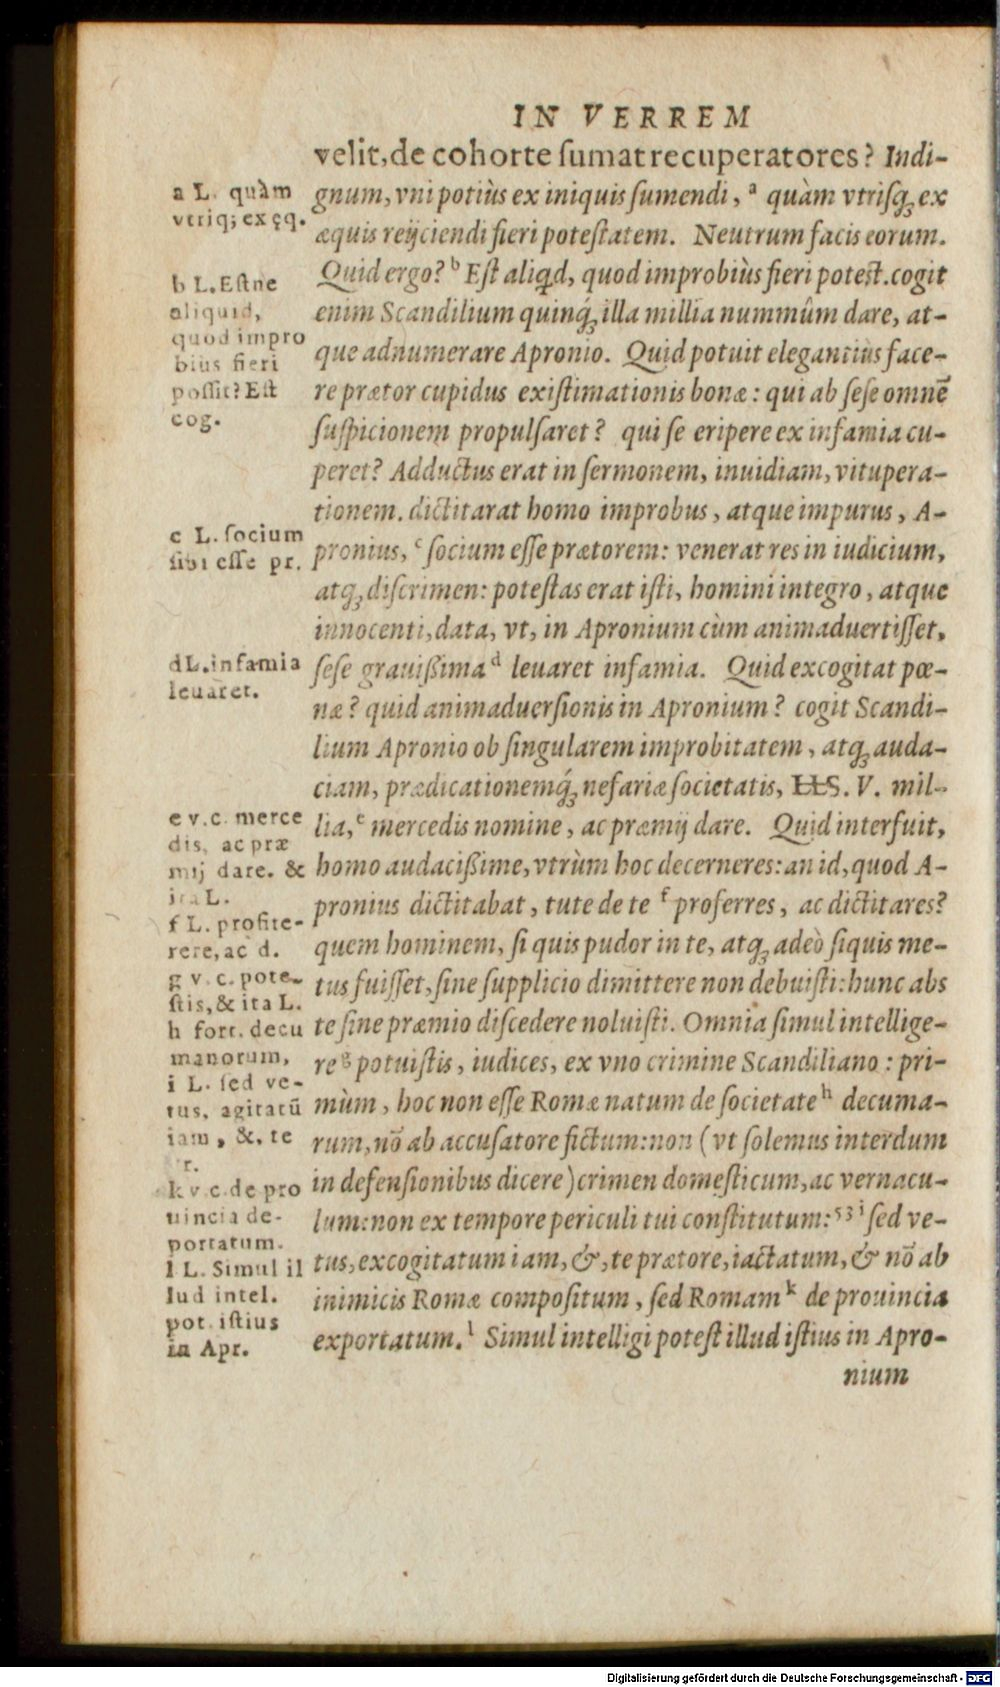 IN VERREM
velit, de cohorte ſumat recuperatores? Indi-
gnum, vni potiùs ex iniquis ſumendi, ᵃ quàm vtriſq; ex
æquis reijciendi fieri poteſtatem. Neutrum facis eorum.
Quid ergo? ᵇ Eſt aliqd, quod improbiùs fieri poteſt. cogit
enim Scandilium quinq́; illa millia nummûm dare, at-
que adnumerare Apronio. Quid potuit elegantiùs face-
re prætor cupidus exiſtimationis bonæ: qui ab ſeſe omnē
ſuſpicionem propulſaret? qui ſe eripere ex infamia cu-
peret? Adductus erat in ſermonem, inuidiam, vitupera-
tionem. dictitarat homo improbus, atque impurus, A-
pronius, ᶜ ſocium eſſe prætorem: venerat res in iudicium,
atq; diſcrimen: poteſtas erat iſti, homini integro, atque
innocenti, data, vt, in Apronium cùm animaduertiſſet,
ſeſe grauißima ᵈ leuaret infamia. Quid excogitat pœ-
næ? quid animaduerſionis in Apronium? cogit Scandi-
lium Apronio ob ſingularem improbitatem, atq; auda-
ciam, prædicationemq́; nefariæ ſocietatis, HS. V. mil-
lia, ᵉ mercedis nomine, ac præmij dare. Quid interfuit,
homo audacißime, vtrùm hoc decerneres: an id, quod A-
pronius dictitabat, tute de te ᶠ proferres, ac dictitares?
quem hominem, ſi quis pudor in te, atq; adeò ſiquis me-
tus fuiſſet, ſine ſupplicio dimittere non debuiſti: hunc abs
te ſine præmio diſcedere noluiſti. Omnia ſimul intellige-
re ᵍ potuiſtis, iudices, ex vno crimine Scandiliano: pri-
mùm, hoc non eſſe Romæ natum de ſocietate ʰ decuma-
rum, nō ab accuſatore fictum: non (vt ſolemus interdum
in defenſionibus dicere) crimen domeſticum, ac vernacu-
lum: non ex tempore periculi tui conſtitutum: ⁵³ ⁱ ſed ve-
tus, excogitatum iam, &, te prætore, iactatum, & nō ab
inimicis Romæ compoſitum, ſed Romam ᵏ de prouincia
exportatum. ˡ Simul intelligi poteſt illud iſtius in Apro-
nium
a L. quàm
vtriq; ex ęq.
b L. Eſtne
aliquid,
quod impro
biùs fieri
poſſit? Eſt
cog.
c L. ſocium
ſibi eſſe pr.
d L. infamia
leuaret.
e v. c. merce
dis, ac præ
mij dare. &
ita L.
f L. profite-
rere, ac d.
g v. c. pote-
ſtis, & ita L.
h fort. decu
manorum,
i L. ſed ve-
tus, agitatū
iam, &, te
r.
k v. c. de pro
uincia de-
portatum.
l L. Simul il
lud intel.
pot. iſtius
in Apr.
Digitalisierung gefördert durch die Deutsche Forschungsgemeinschaft - DFG